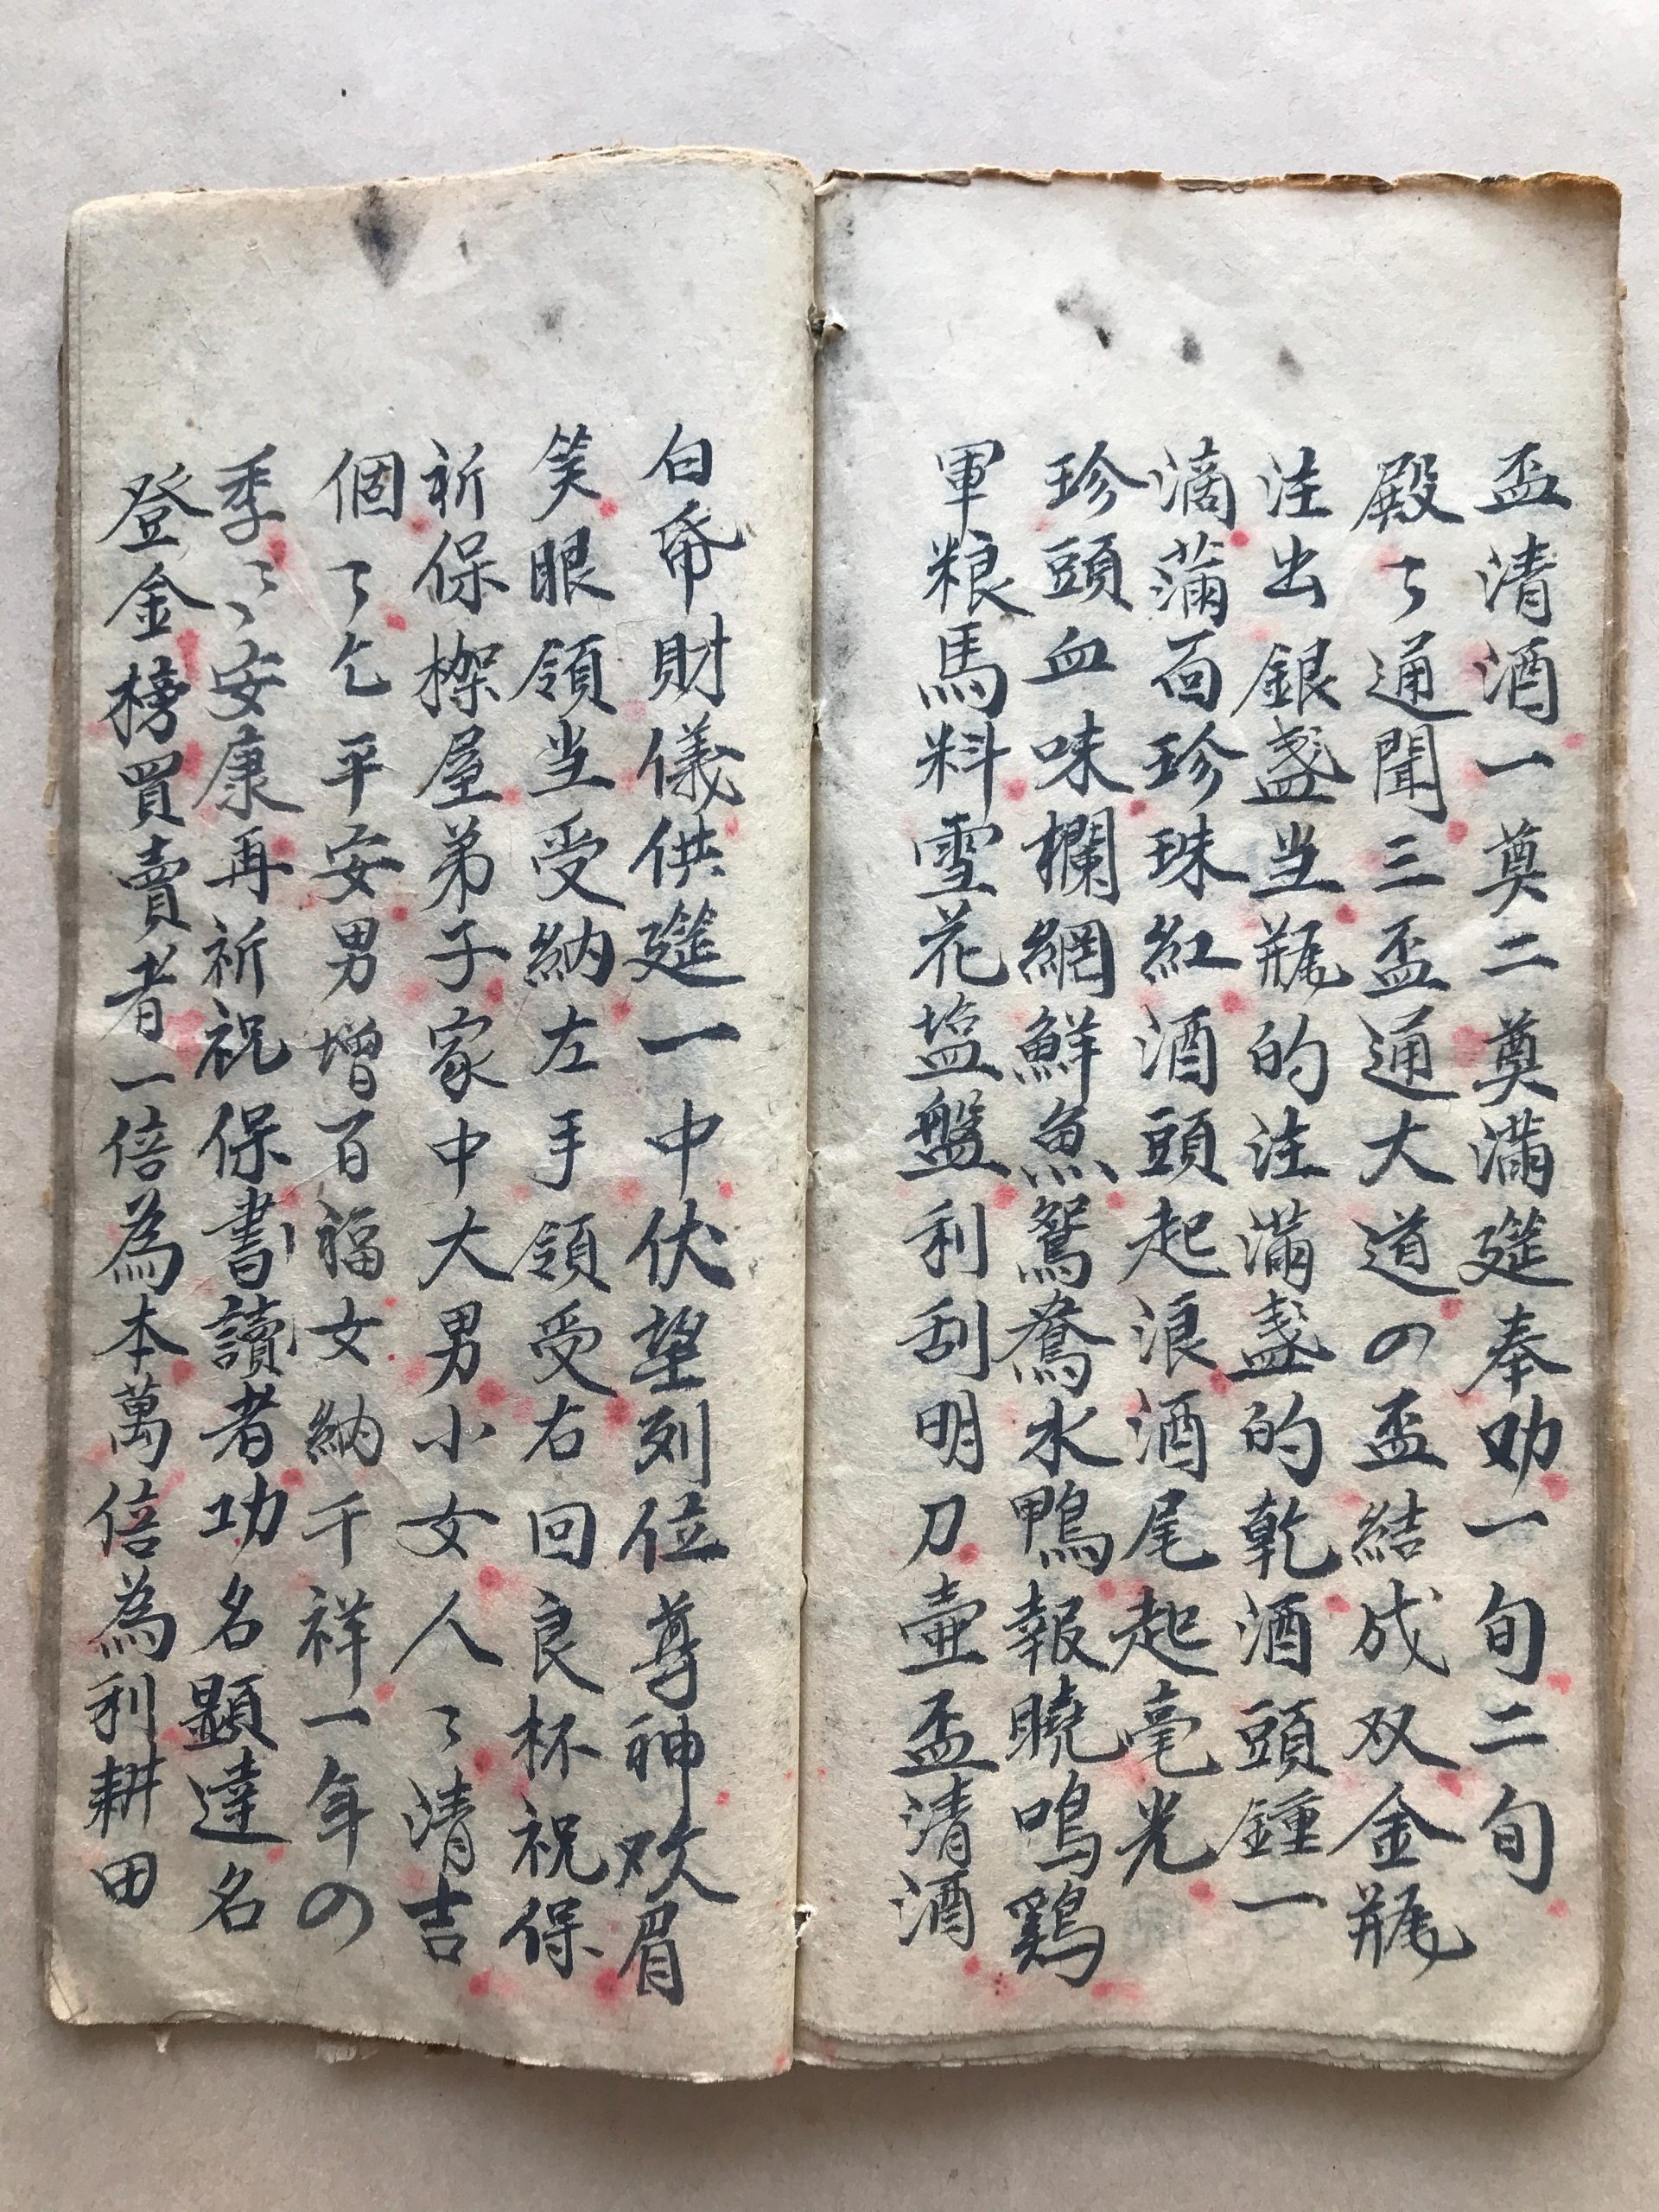 盃清酒一奠二奠滿筵奉劝一旬二旬
殿々通聞三盃通大道の盃結成双金瓶
注出銀盞当瓶的注滿盞的乾酒頭鍾一
滴滿面珍珠紅酒頭起浪酒尾起毫光
珍頭血味欄網鮮魚鴛鴦水鴨報曉鳴鷄
軍粮馬料雪花塩盤利刮明刀壺盃清酒
白帋財儀供筵一中伏望列位尊神欢眉
笑眼領当受納左手領受右回良杯祝保
祈保樑屋弟子家中大男小女人々清吉
個々乞平安男增百福女納千祥一年の
季々安康再祈祝保書讀者功名顯達名
登金榜買賣者一倍為本萬倍為利耕田